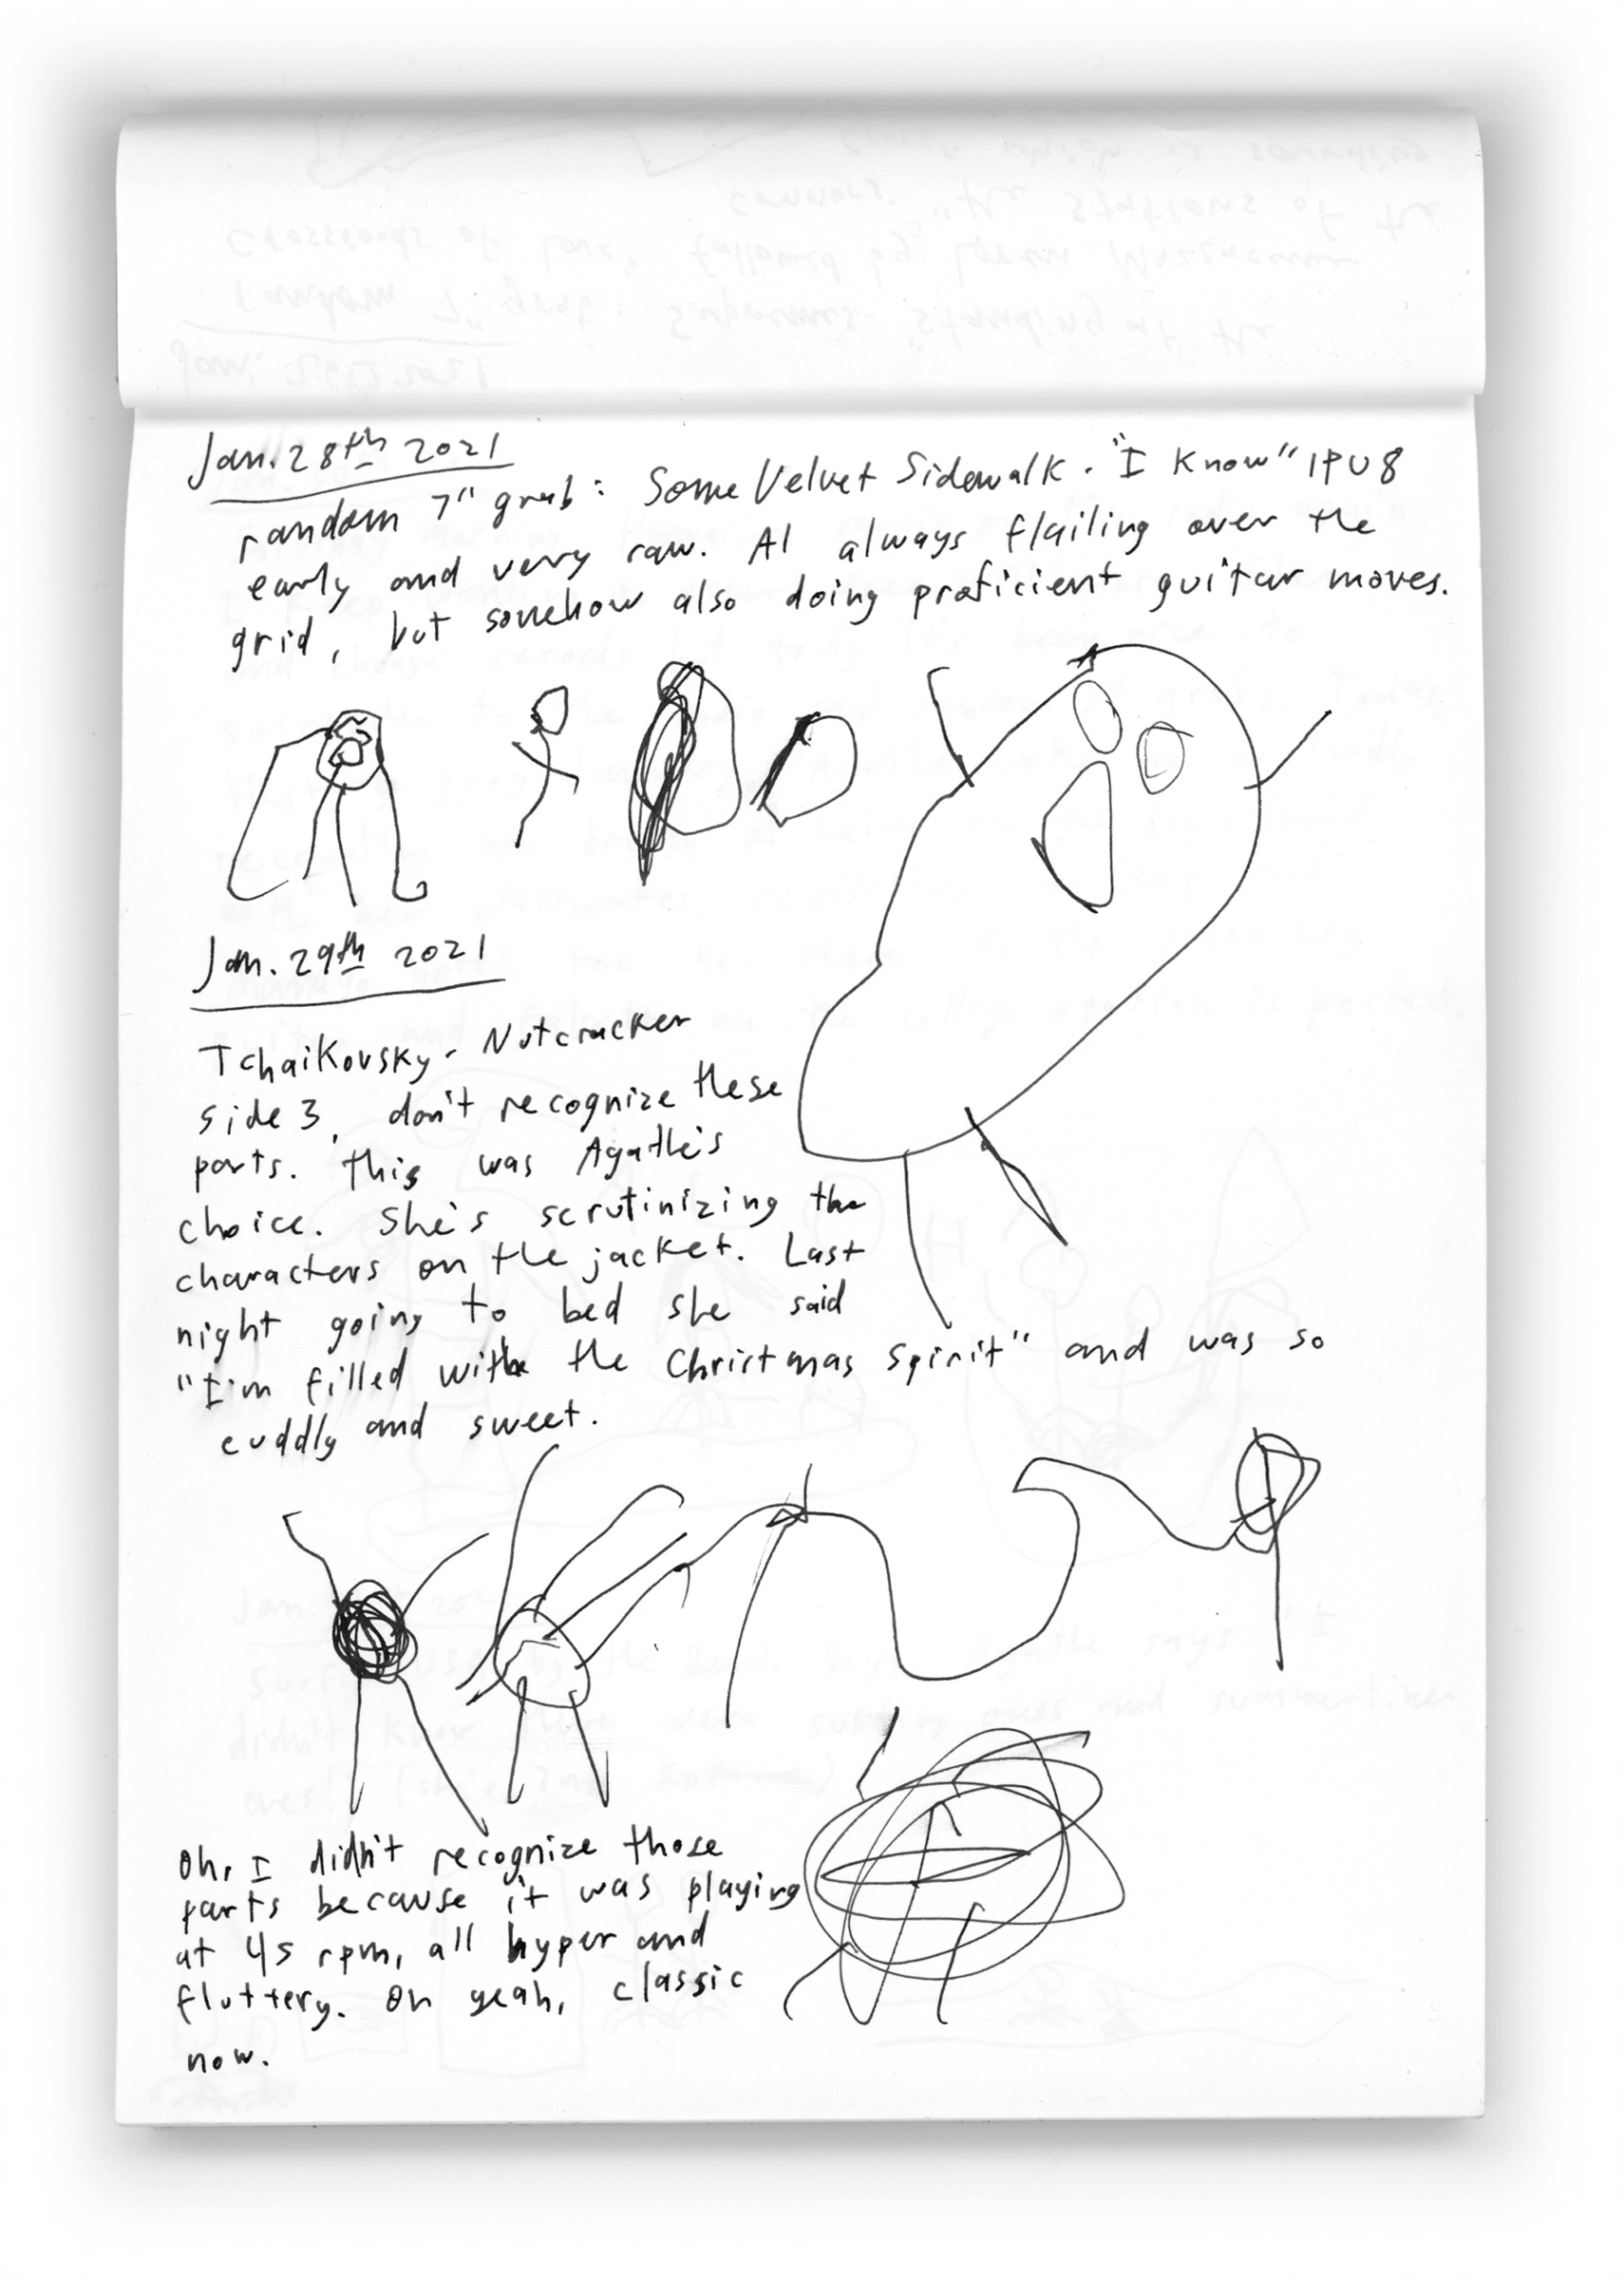 Jan. 28th 2021
random 7" grab: Some Velvet Sidewalk - "I Know" IPU8
early and very raw. Al always flailing over the
grid, but somehow also doing proficient guitar moves.
Jan. 29th 2021
Tchaikovsky - Nutcracker
side 3, don't recognize these
parts. This was Agathe's
choice. She's scrutinizing the
characters on the jacket. Last
night going to bed she said
"I'm filled with the Christmas spirit" and was so
cuddly and sweet.
Oh, I didn't recognize those
parts because it was playing
at 45 rpm, all hyper and
fluttery. Oh yeah, classic
now.